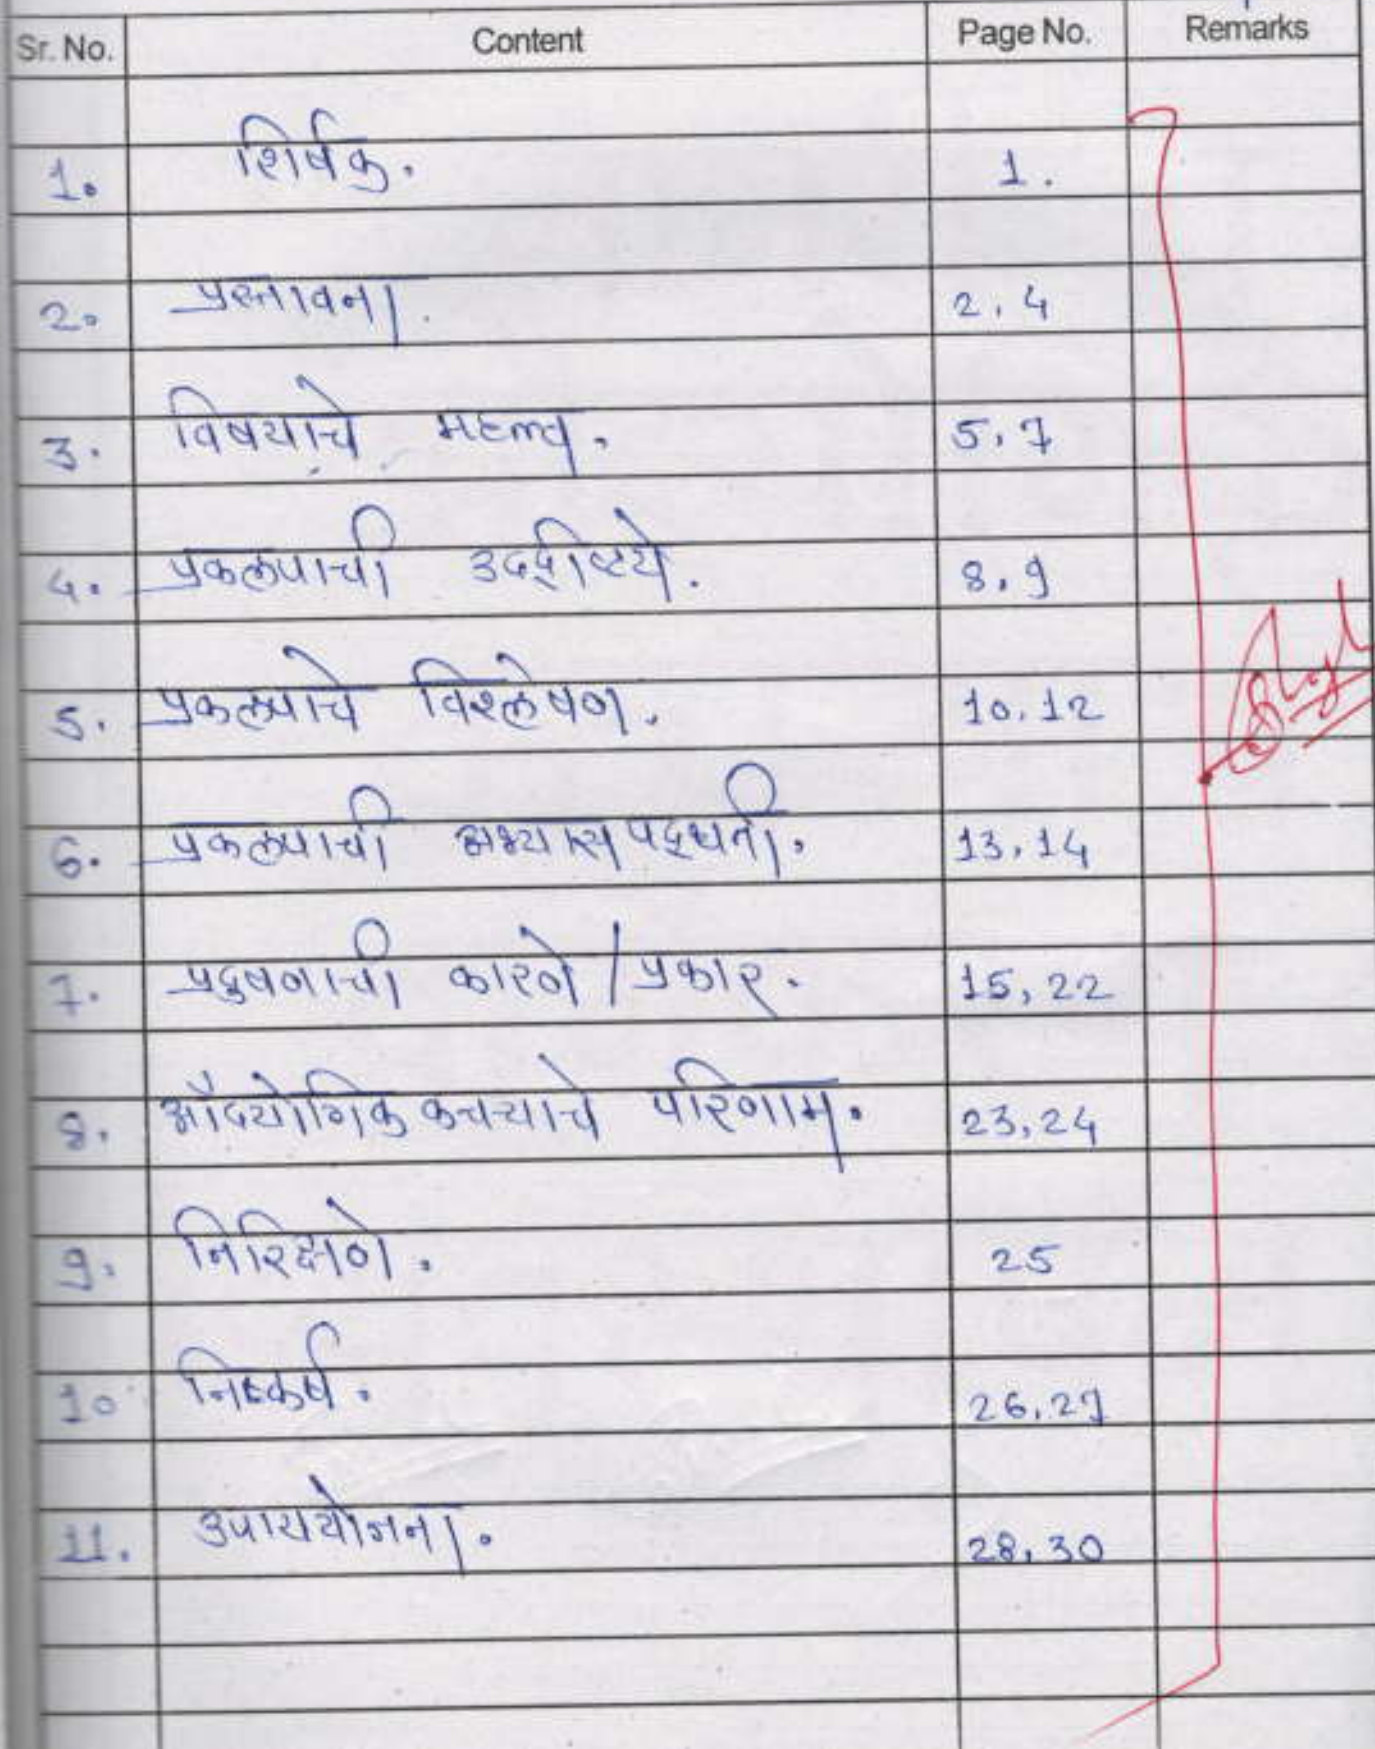 Sr. No. Content Page No. Remarks
1. शिर्षक. 1.
2. प्रस्तावना. 2, 4
3. विषयाचे महत्व. 5, 7
4. प्रकल्पाची उद्दीष्टये. 8, 9
5. प्रकल्पाचे विश्लेषण. 10, 12
6. प्रकल्पाची अभ्यासपद्धती. 13, 14
7. प्रदुषणाची कारणे / प्रकार. 15, 22
8. औदयोगिक कचऱ्याचे परिणाम. 23, 24
9. निरिक्षणे. 25
10 निष्कर्ष. 26, 27
11. उपाययोजना. 28, 30